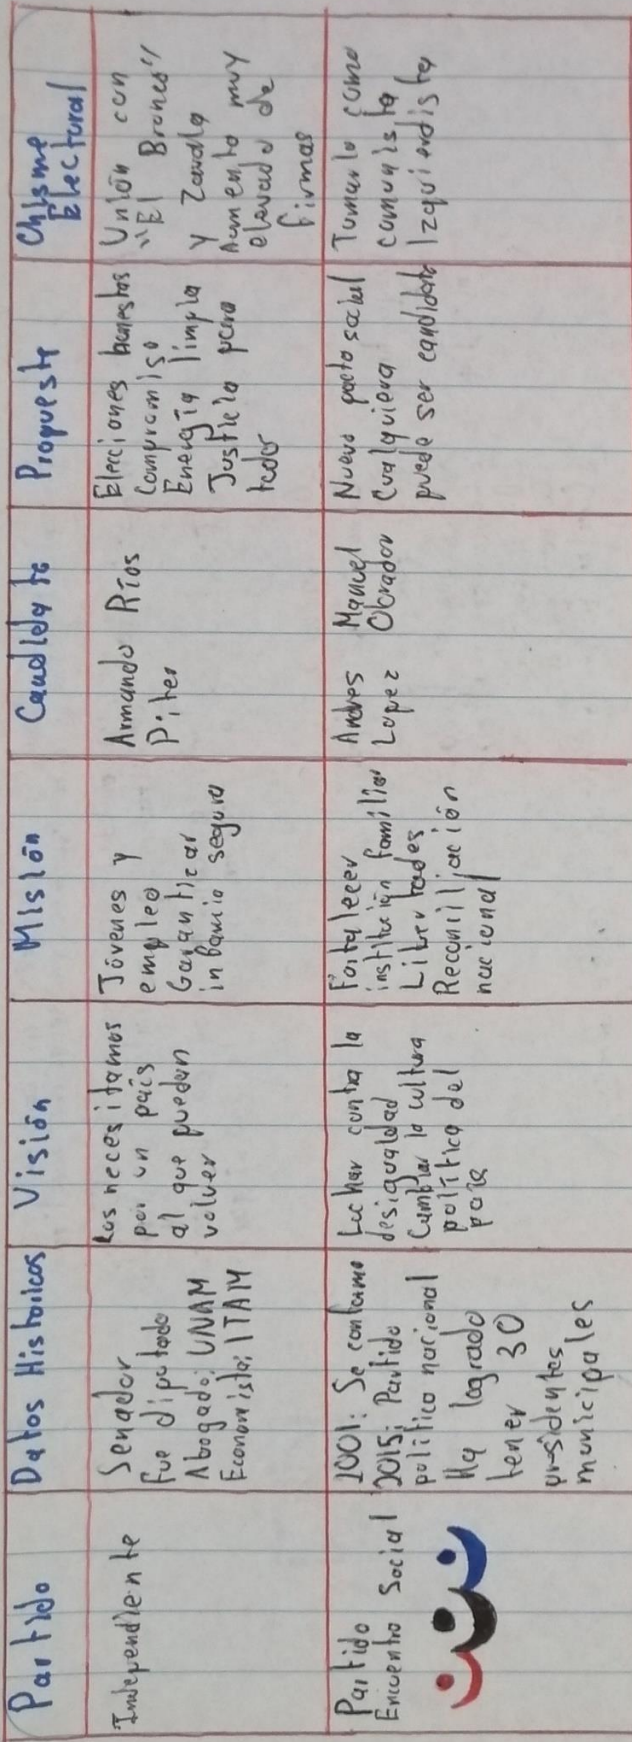 Partido
Datos Históricos
Visión
Misión
Candidato
Propuesta
Chisme
Electoral
Independiente
Senador
Fue diputado
Abogado: UNAM
Economista: ITAM
Los necesitamos
por un país
al que puedan
volver
Jóvenes y
empleo
Garantizar
infancia segura
Armando Ríos
Piter
Elecciones honestas
Compromiso
Energía limpia
Justicia para
todos
Unión con
"El Bronco"
y Zavala
Aumento muy
elevado de
firmas
Partido
Encuentro Social
2001: Se conformo
2015: Partido
político nacional
Ha logrado
tener 30
presidentes
municipales
Luchar contra la
desigualdad
Cambiar la cultura
política del
país
Fortalecer
institución familiar
Libertades
Reconciliación
nacional
Andres Manuel
Lopez Obrador
Nuevo pacto social
Cualquiera
puede ser candidato
Tomarlo como
comunista
Izquierdista